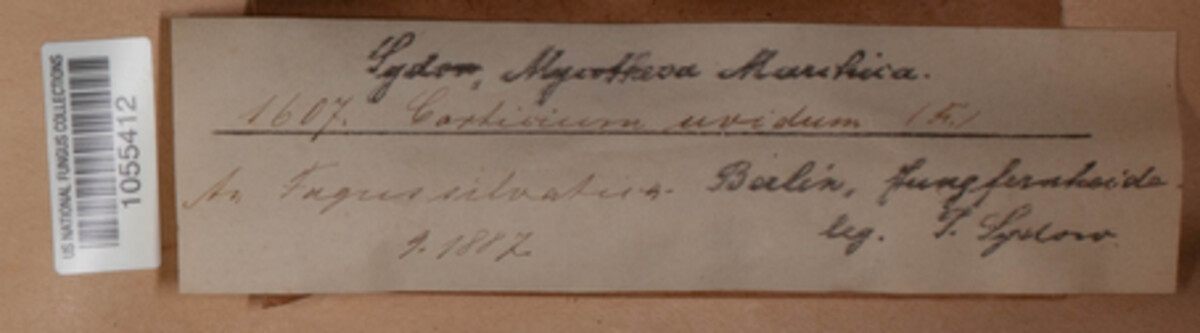 US NATIONAL FUNGUS COLLECTIONS
1055412
Sydow, Mycotheca Marchica.
1607. Corticium uvidum (Fr.)
An Fagus silvatica. Berlin, Jungfernheide.
9. 1887. leg. P. Sydow.